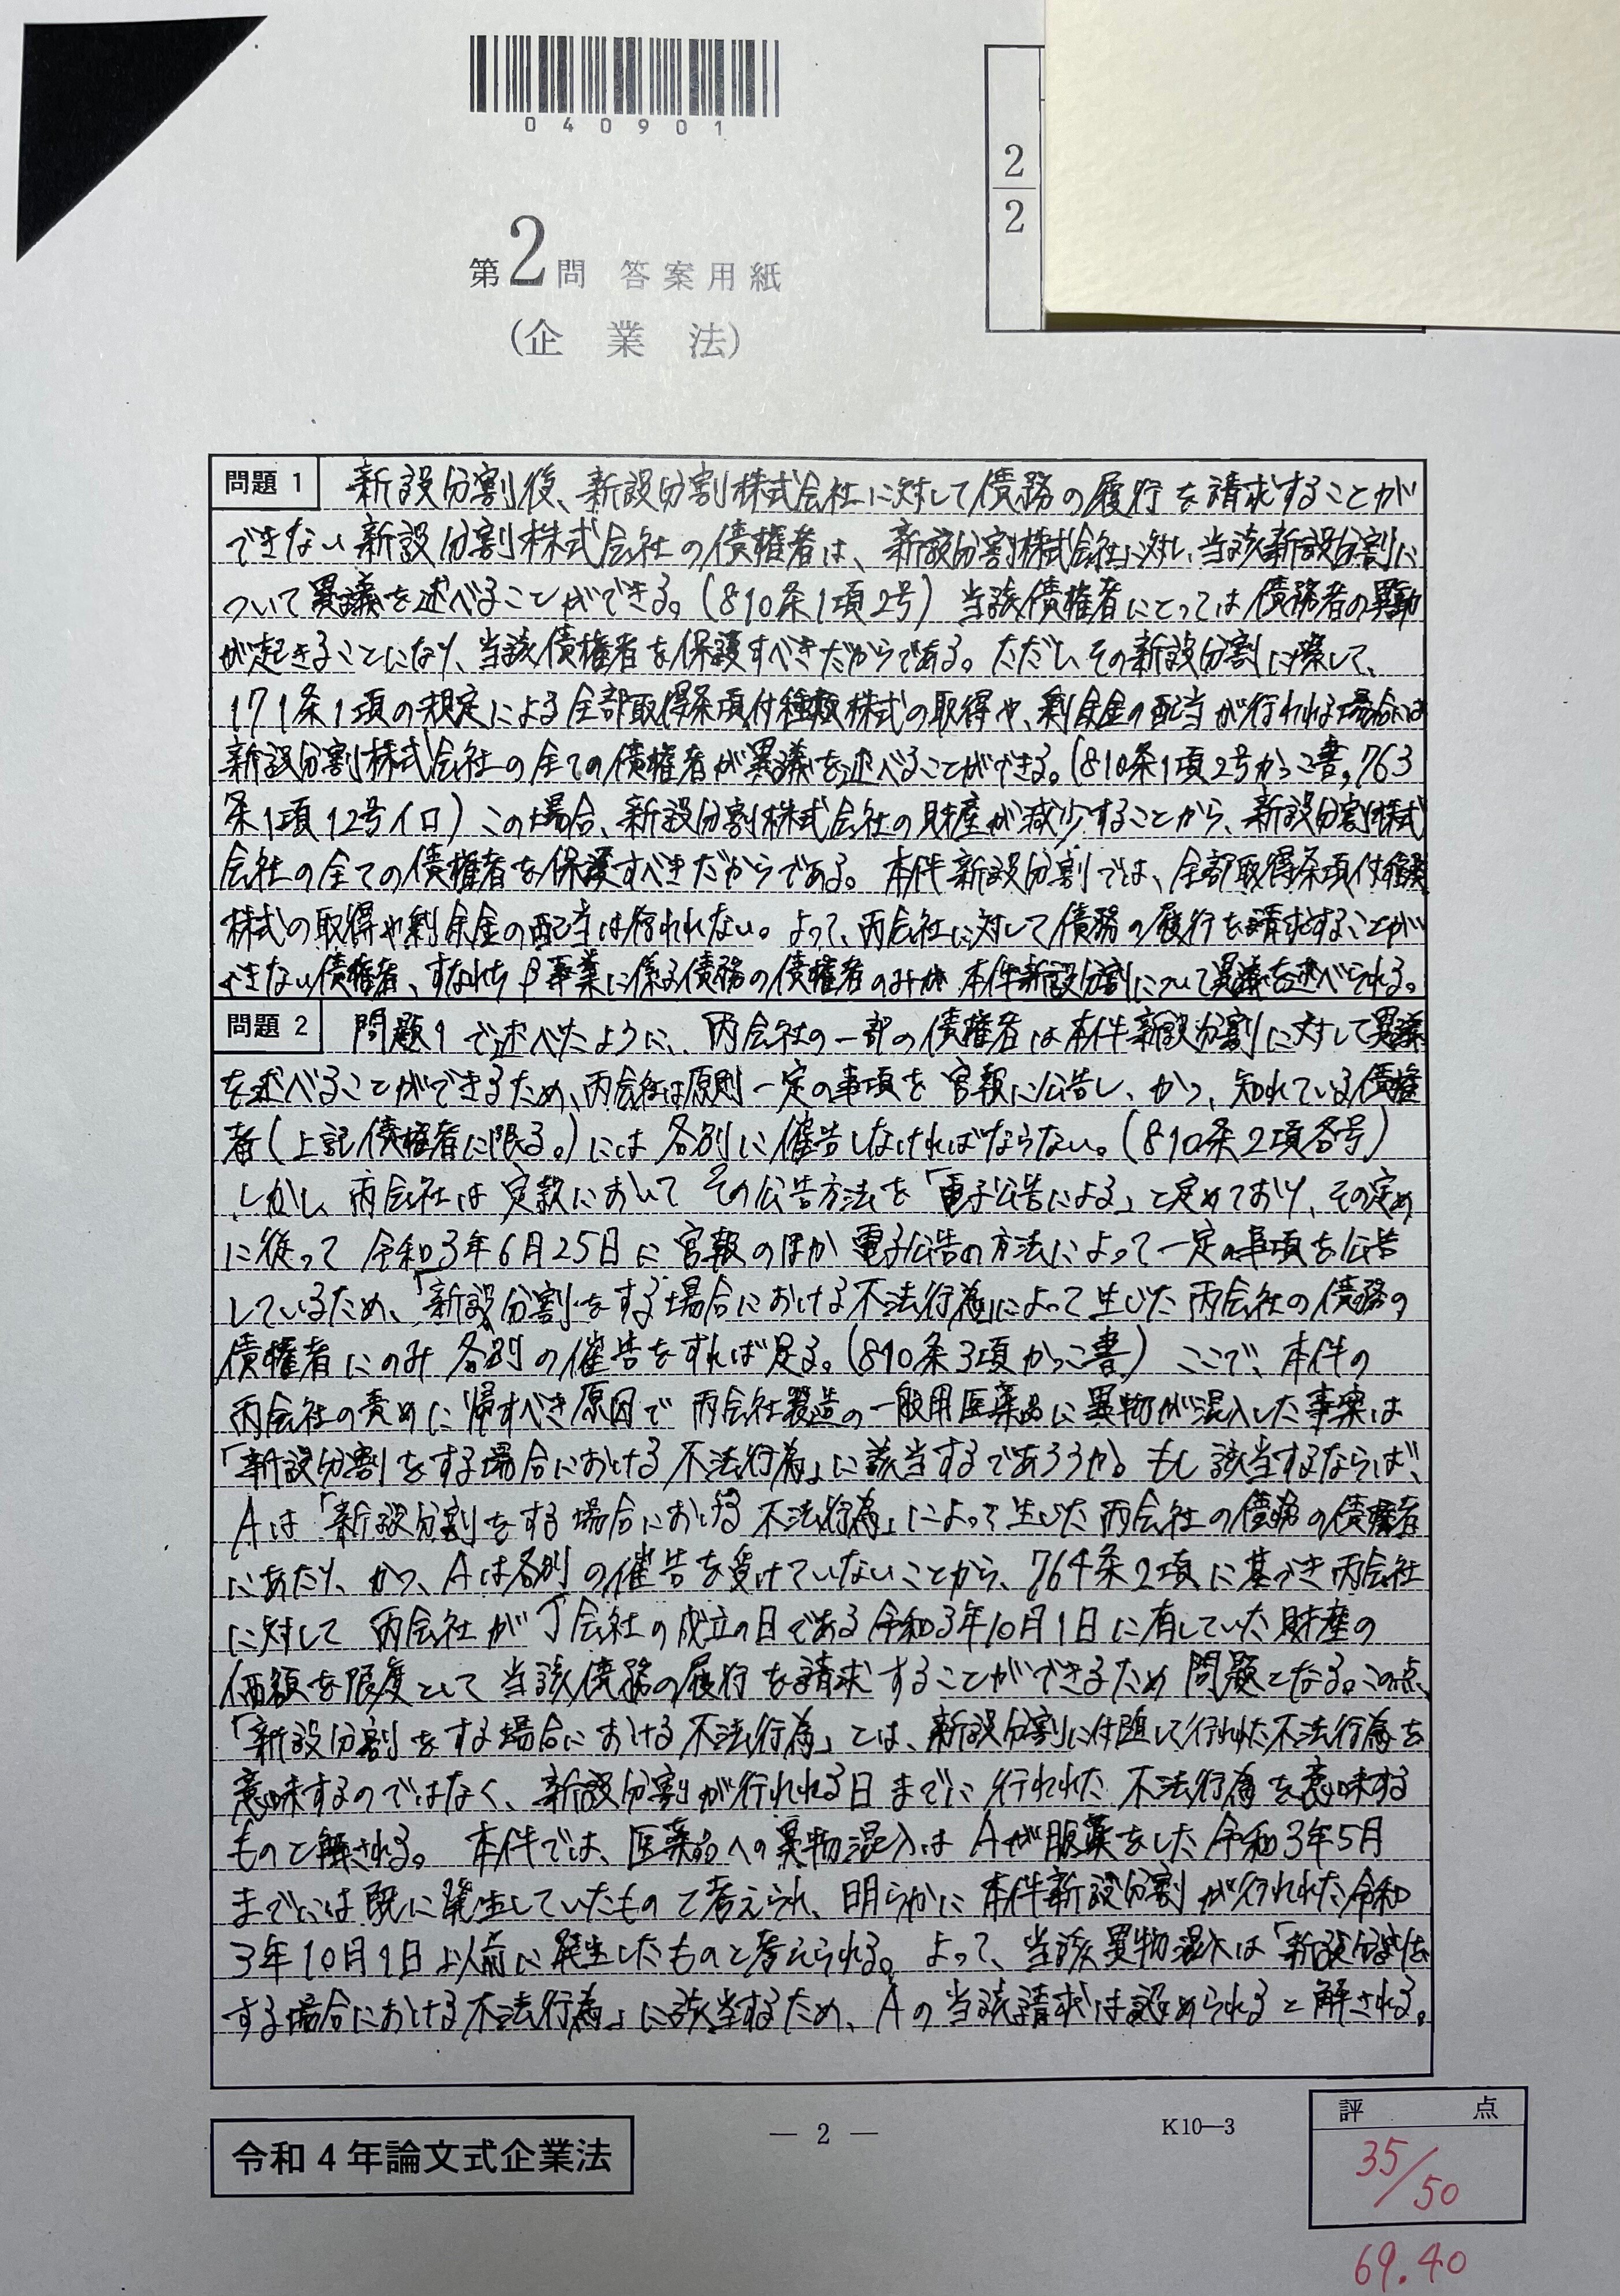 040901
2
2
第2問 答案用紙
(企業法)
問題 1 新設分割後、新設分割株式会社に対して債務の履行を請求することが
できない新設分割株式会社の債権者は、新設分割株式会社に対し、当該新設分割に
ついて異議を述べることができる。(810条1項2号) 当該債権者にとっては債務者の異動
が起きることになり、当該債権者を保護すべきだからである。ただし、その新設分割に際して、
171条1項の規定による全部取得条項付種類株式の取得や、剰余金の配当が行われる場合には
新設分割株式会社の全ての債権者が異議を述べることができる。(810条1項2号かっこ書, 763
条1項12号イロ) この場合、新設分割株式会社の財産が減少することから、新設分割株式
会社の全ての債権者を保護すべきだからである。本件新設分割では、全部取得条項付種類
株式の取得や剰余金の配当は行われない。よって、丙会社に対して債務の履行を請求することが
できない債権者、すなわちβ事業に係る債務の債権者のみが本件新設分割について異議を述べられる。
問題 2 問題1で述べたように、丙会社の一部の債権者は本件新設分割に対して異議
を述べることができるため、丙会社は原則一定の事項を官報に公告し、かつ、知れている債権
者(上記債権者に限る。)には各別に催告しなければならない。(810条2項各号)
しかし、丙会社は定款においてその公告方法を「電子公告による」と定めており、その定め
に従って令和3年6月25日に官報のほか電子公告の方法によって一定の事項を公告
しているため、「新設分割をする場合における不法行為」によって生じた丙会社の債務の
債権者にのみ各別の催告をすれば足る。(810条3項かっこ書) ここで、本件の
丙会社の責めに帰すべき原因で丙会社製造の一般用医薬品に異物が混入した事案は
「新設分割をする場合における不法行為」に該当するであろうか。もし該当するならば、
Aは「新設分割をする場合における不法行為」によって生じた丙会社の債務の債権者
にあたり、かつ、Aは各別の催告を受けていないことから、764条2項に基づき丙会社
に対して丙会社が丁会社の成立の日である令和3年10月1日に有していた財産の
価額を限度として当該債務の履行を請求することができるため問題となる。この点、
「新設分割をする場合における不法行為」とは、新設分割に付随して行われた不法行為を
意味するのではなく、新設分割が行われる日までに行われた不法行為を意味する
ものと解される。本件では、医薬品への異物混入はAが服薬をした令和3年5月
までには既に発生していたものと考えられ、明らかに本件新設分割が行われた令和
3年10月1日以前に発生したものと考えられる。よって、当該異物混入は「新設分割を
する場合における不法行為」に該当するため、Aの当該請求は認められると解される。
令和4年論文式企業法
— 2 —
K10—3
評 点
35/50
69.40